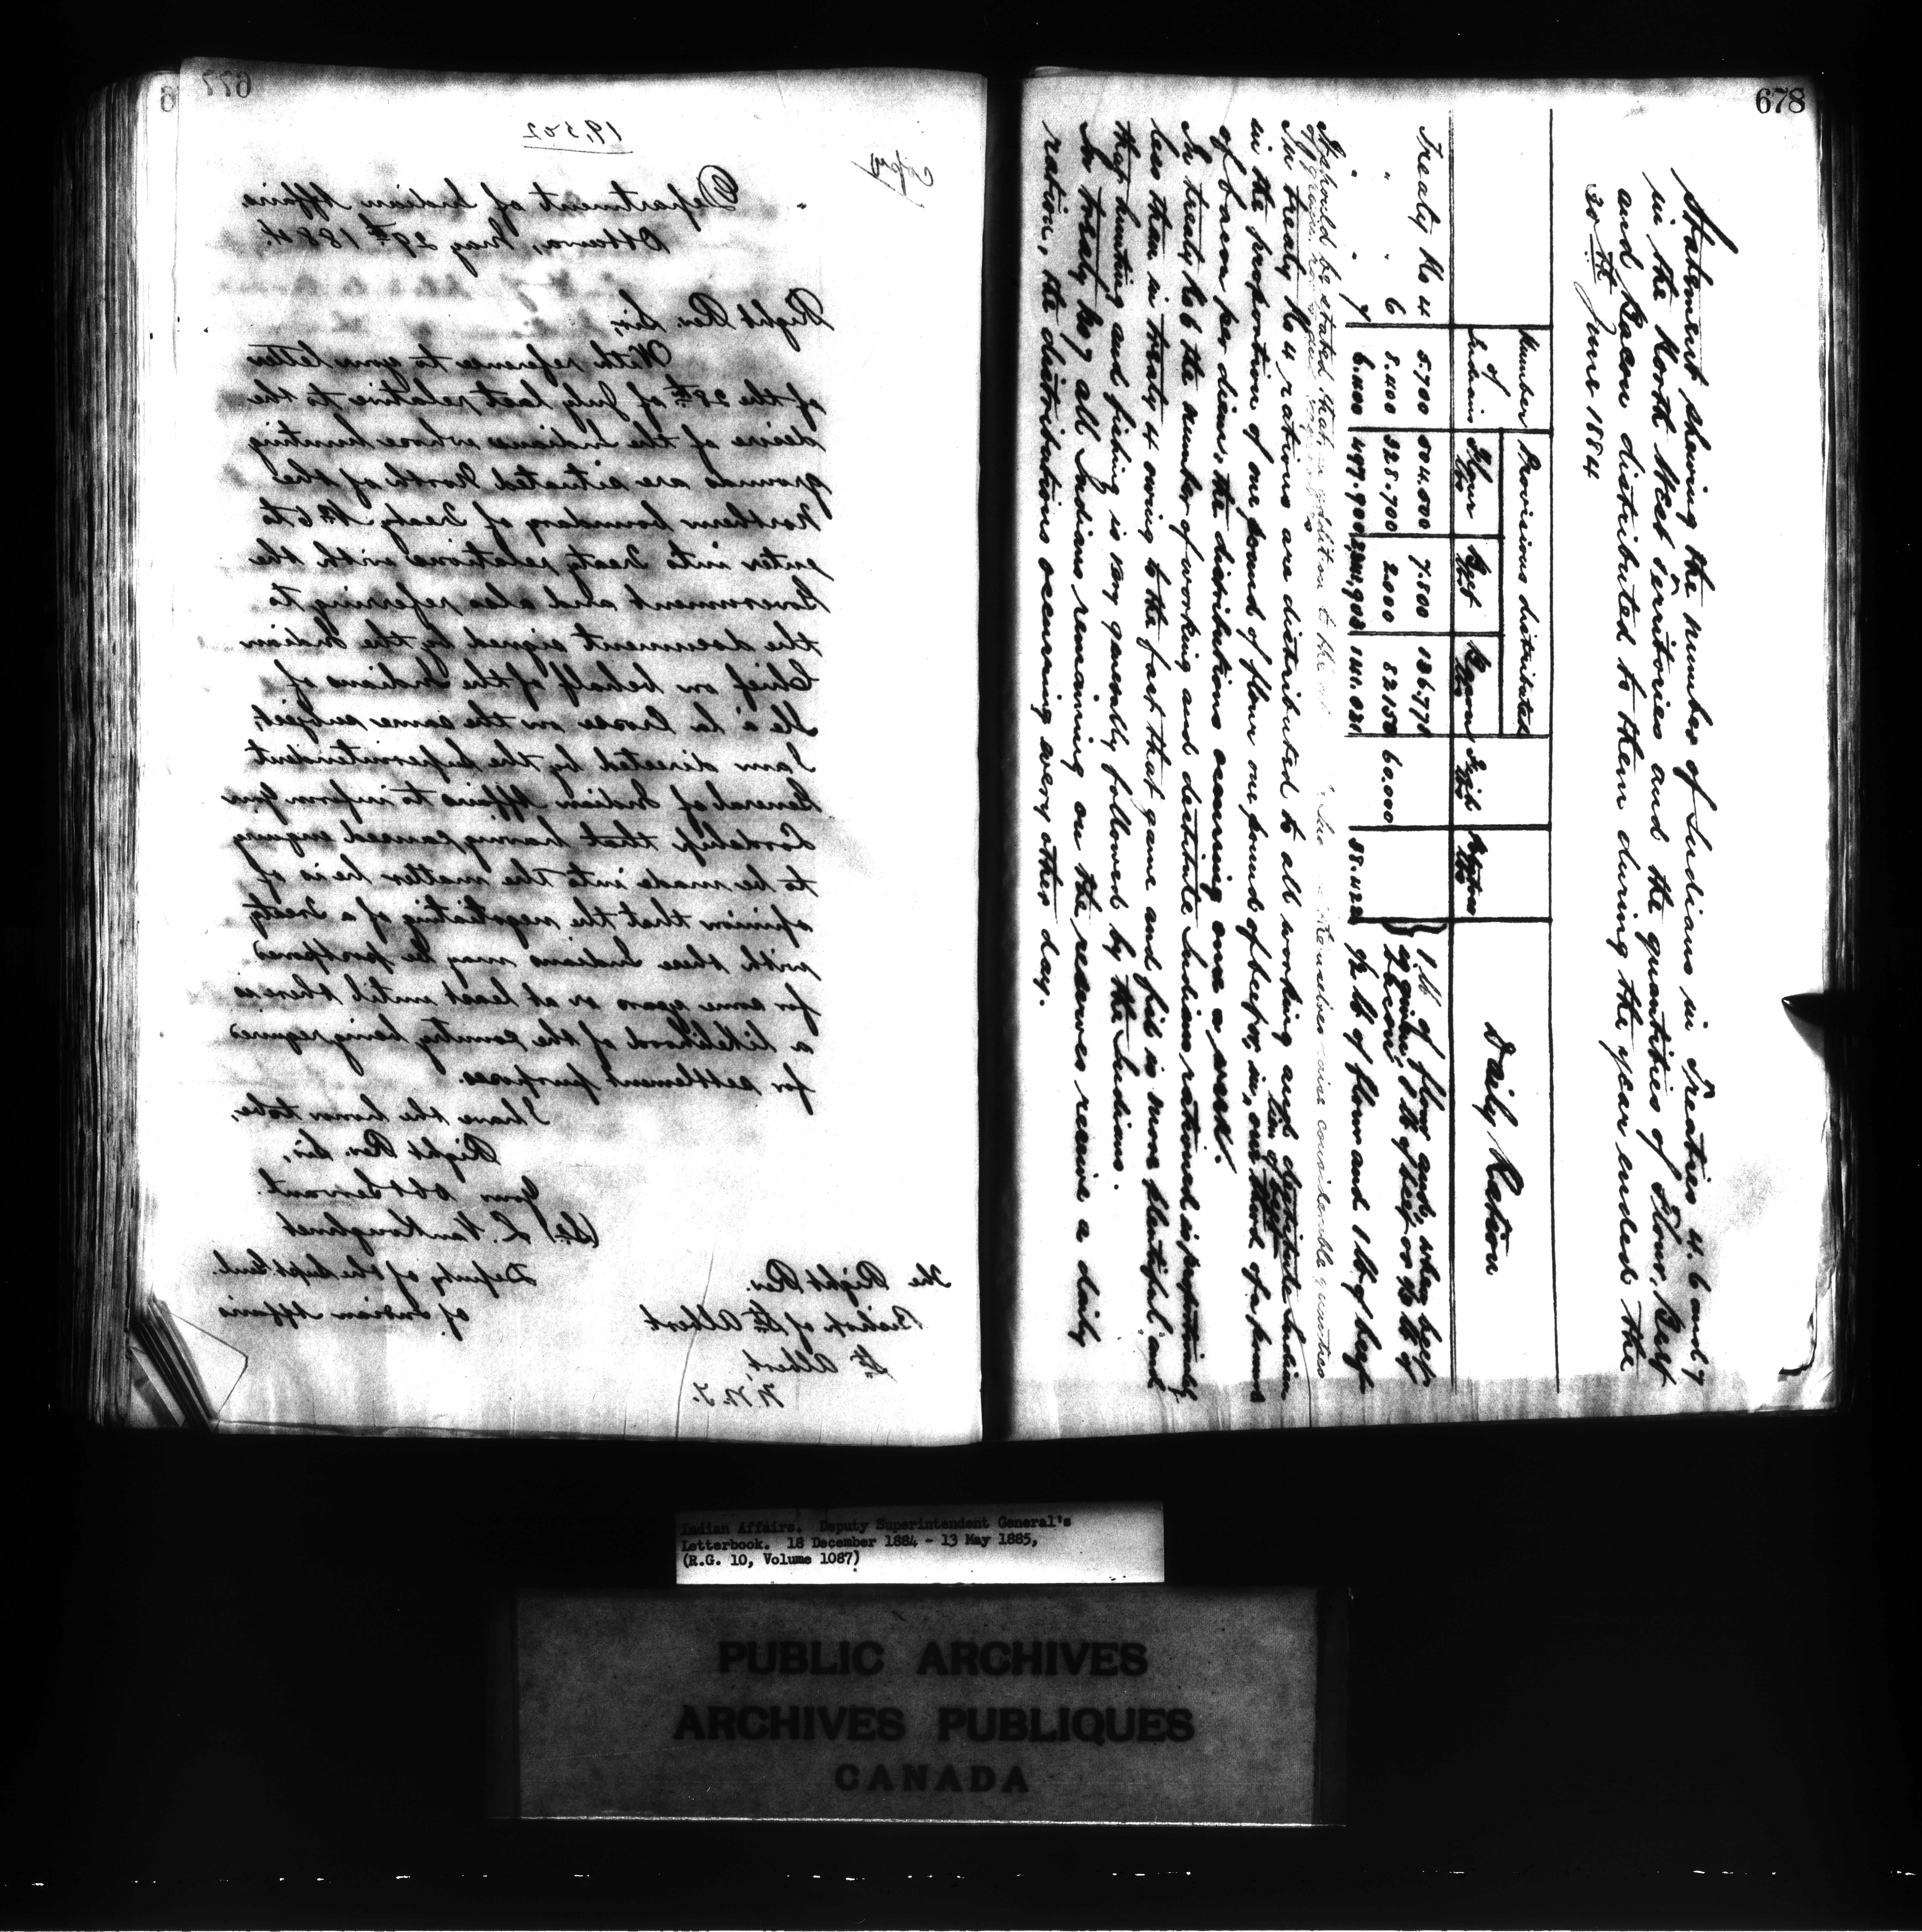 677
19502
Copy
Department of Indian Affairs
Ottawa, May 29th 1884.
Right Rev. Sir,
With reference to your letter
of the 28th of July last relative to the
desire of the Indians whose hunting
grounds are situated North of the
Northern boundary of Treaty No 6 to
enter into Treaty relations with the
Government and also referring to
the document signed by the Indian
Chief on behalf of the Indians of
Ile a la Crosse on the same subject,
I am directed by the Superintendent
General of Indian Affairs to inform Your
Lordship that having caused enquiry
to be made into the matter he is of
opinion that the negotiating of a Treaty
with these Indians may be postponed
for some years or at least until there is
a likelihood of the country being required
for settlement purposes.
I have the honor to be,
Right Rev. Sir,
Your Obt Servant.
L. VanKoughnet
Deputy of the Supt Genl.
of Indian Affairs
The Right Rev.
Bishop of St Albert
St Albert,
N.W.T.
678
Statement showing the number of Indians in Treaties 4. 6 and 7
in the North West Territories and the quantities of Flour, Beef
and Bacon distributed to them during the year ended the
30th June 1884
Number of Indians
Provisions distributed
Flour lbs
Beef lbs
Bacon lbs
Fish lbs
Daily Ration
Treaty No 4 5.700 504.000 7.500 136.771
" " 6 8.400 328.700 2000 82150 60.000
" " 7 6.400
1 lb of flour and, when beef
is given, 1 lb of beef or 1/2 lb of
bacon
1/2 lb of flour and 1 lb of beef
It should be stated that in addition to the
themselves raise considerable quantities
of grain
In treaty No 4 rations are distributed to all working and destitute Indians
in the proportion of one pound of flour one pound of beef or, in lieu of beef, one third of a pound
of bacon per diem, the distributions occurring once a week.
In treaty No 6 the number of working and destitute Indians rationed is proportionately
less than in treaty 4 owing to the fact that game and fish is more plentiful and
that hunting and fishing is very generally followed by the Indians.
In treaty No 7 all Indians remaining on the reserves receive a daily
ration, the distributions occurring every other day.
Indian Affairs. Deputy Superintendent General's
Letterbook. 18 December 1884 - 13 May 1885,
(R.G. 10, Volume 1087)
PUBLIC ARCHIVES
ARCHIVES PUBLIQUES
CANADA